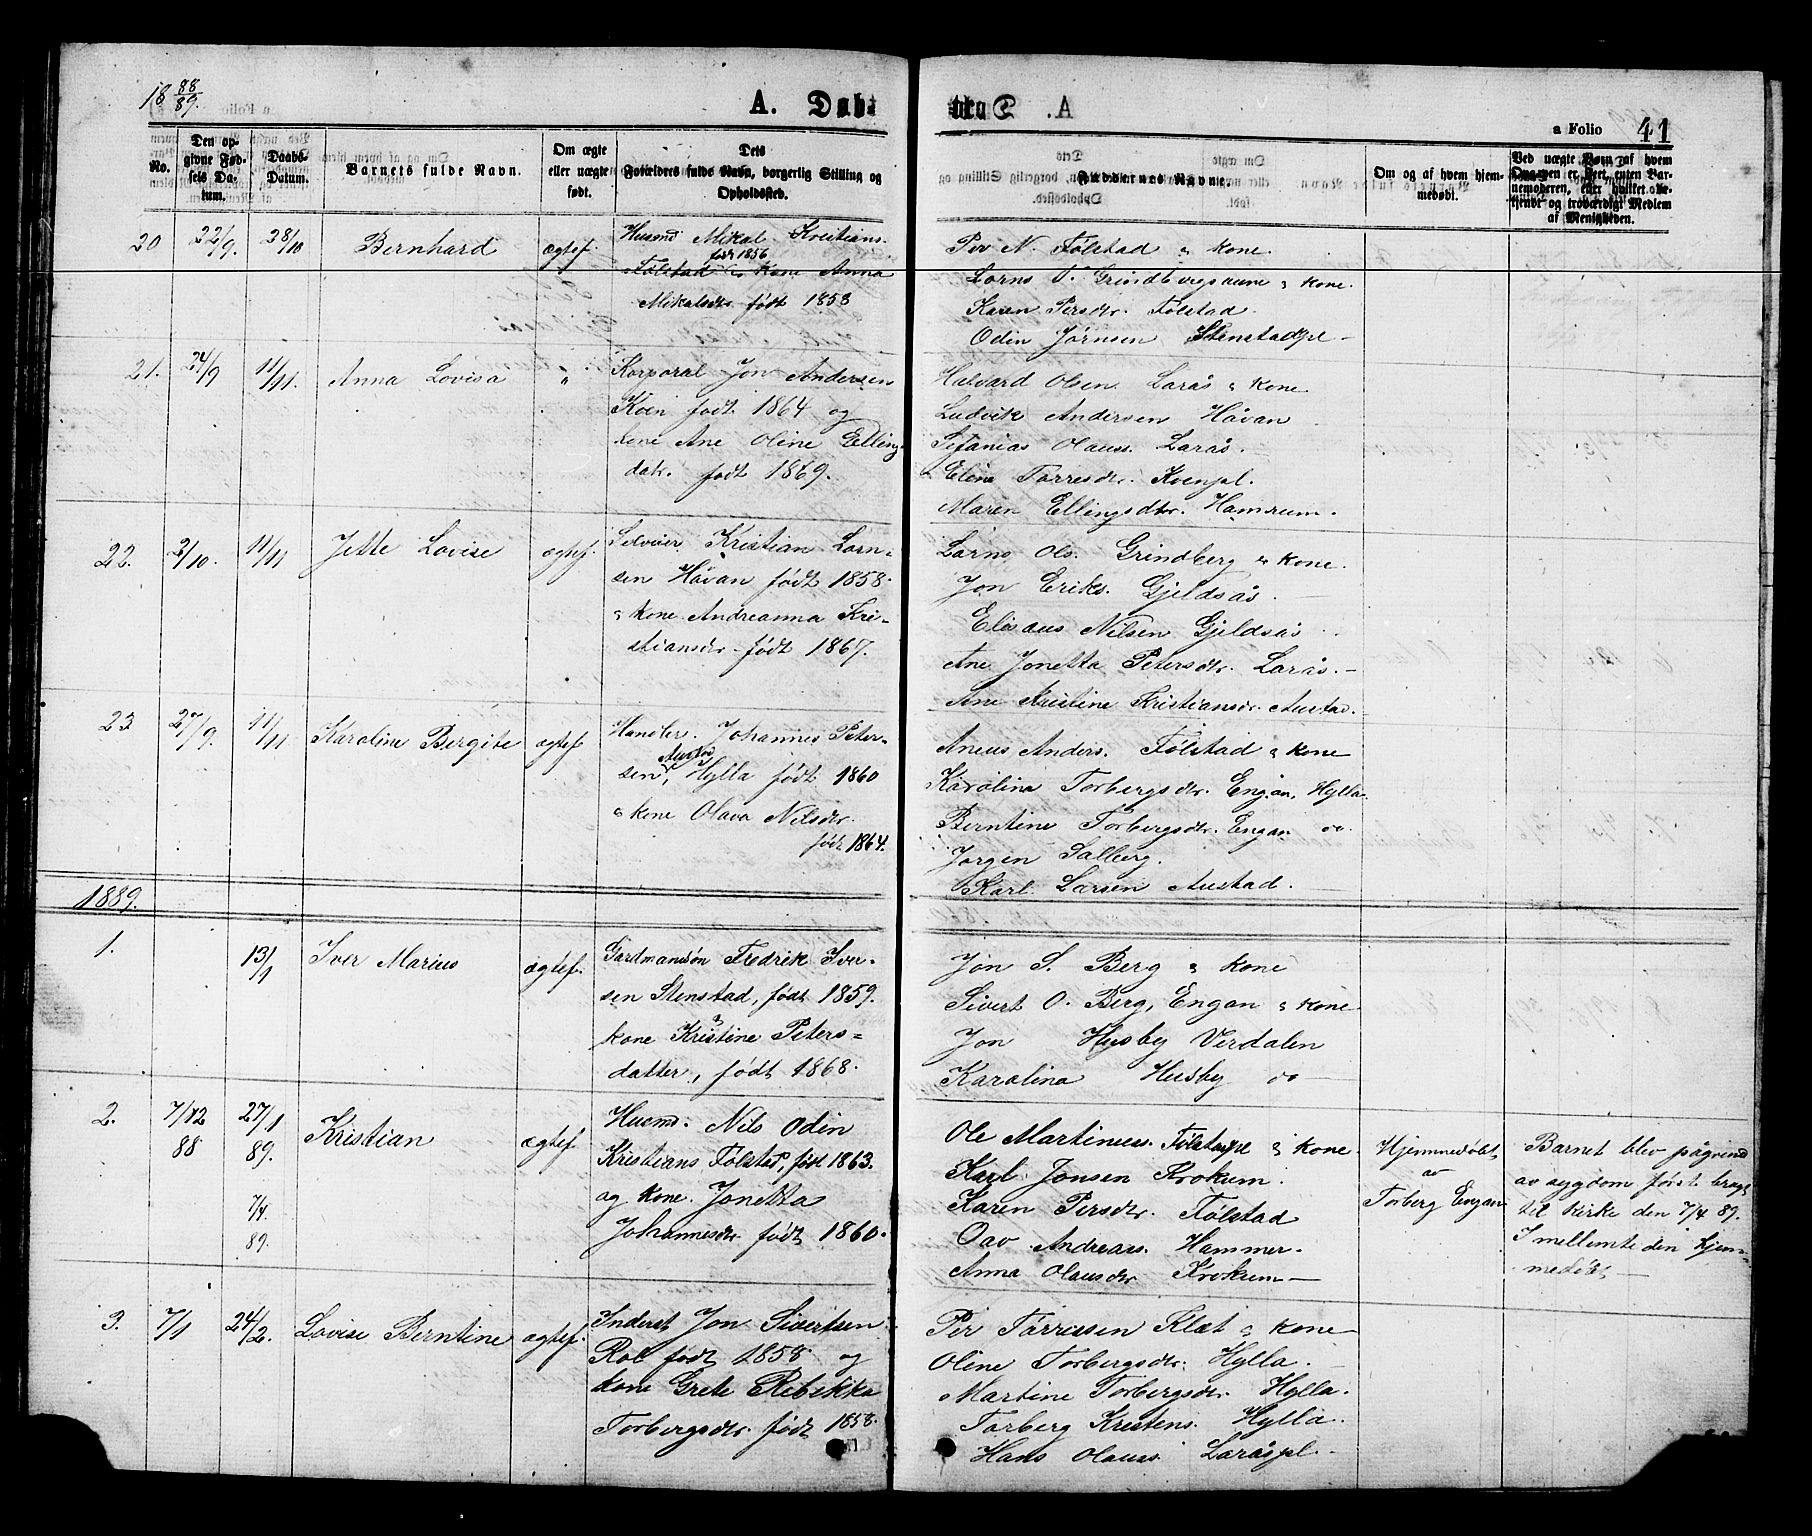 18 88/89.
A. Døb-
te.
a Folio 41
No.
Den op-
givne Fød-
sels Da-
tum.
Daabs-
Datum.
Barnets fulde Navn.
Om ægte
eller uægte
født.
Dets
Forældres fulde Navn, borgerlig Stilling og
Opholdssted.
Faddernes Navne.
Om og af hvem hjem-
medøbt.
Ved uægte Børn af hvem
Opgaven er skeet, enten Bar-
nemoderen, eller hvilket be-
kjendt og troværdigt Medlem
af Menigheden.
20 22/9. 28/10 Bernhard ægtef.
Husmd Mikal Kristians.
født 1856
Følstad & kone Anna
Mikalsdtr født 1858
Per N. Følstad & kone.
Lorns T. Grindbergsaune & kone.
Karen Persdtr. Følstad
Odin Jørnsen Stenstadpl
21. 24/9 11/11. Anna Lovisa "
Korporal Jon Andersen
Kvin født 1864 og
kone Ane Oline Elling
datr. født 1869.
Halvard Olsen Larås & kone
Ludvik Andersen Håvan
Sefanias Olauss. Larås.
Elina Tørresdtr. Kvenpl.
Maren Ellingsdtr. Hamrum.
22. 2/10. 11/11 Jette Lovise ægtef.
Selveier Kristian Lorn-
sen Håvan født 1858.
& kone Andreanna Kri-
stiansdtr. født 1867.
Lorns Ols. Grindberg & kone.
Jon Eriks. Gjeldsås
Elisæus Nilsen Gjeldsås
Ane Jonetta Petersdtr. Larås.
Ane Kristine Kristiansdr. Austad.
23 27/9. 11/11 Karoline Bergite ægtef.
Handler. Johannes Peter-
Austad
sen, Hylla født 1860
& kone Olava Nilsdtr.
født 1864.
Aneus Anders. Følstad & kone
Karolina Torbergsdtr. Engan, Hylla.
Berntine Torbergsdtr. Engan do.
Jørgen Salberg.
Karl Larsen Austad.
1889.
1. 13/1 Iver Marius ægtef.
Gardmandsøn Fredrik Iver-
sen Stenstad, født 1859.
&
kone Kristine Peters-
datter, født 1868.
Jon S. Berg & kone
Sivert O. Berg, Engan & kone
Jon Husby Verdalen
Karolina Husby do
2. 7/12 88 27/1 89. 7/4. 89. Kristian ægtef.
Husmd. Nils Odin
Kristians Følstad, født 1863.
og kone Jonetta
Johannesdtr født 1860.
Ole Martinuss. Følstadpl & kone
Karl Jonsen Krokum.
Karen Persdtr. Følstad
Oav Andreass. Hammer.
Anna Olausdtr Krokum
Hjemmedøbt
av
Torberg Engan
Barnet blev pågrund
av sygdom først bragt
til kirke den 7/4 89.
I mellemtiden hjem-
medøbt
3. 7/1 24/2. Lovise Berntine ægtef.
Inderst Jon Sivertsen
Rol født 1858 og
kone Grete Rebikka
Torbergsdtr. født 1858.
Per Tørressen Klæt & kone
Oline Torbergsdtr. Hylla.
Martine Torbergsdtr. Hylla.
Torberg Kristens. Hylla.
Hans Olauss. Laråspl.